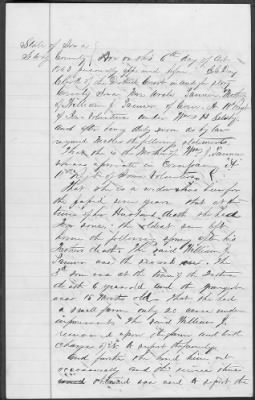 State of Iowa
County } On this 6th day of Oct
1863 personally appeared before
Clerk of the District Court in and for said
County Iowa Mrs Tanner Mother
of William J. Tanner of Com. H
Iowa Volunteers under
and after being duly sworn as by law
required makes the following statements
That she is the Mother of Wm J Tanner
who was a private in Company "H"
Regt of Iowa Volunteers
That she is a widow & has been for
the past nine years that at the
time of her Husbands death she had
four sons. the oldest son left
home the following spring after his
Fathers death said William J.
Tanner was the second son. the
3rd son was at the time of the Fathers
death 6 years old and the youngest
was 15 Months old That she had
a small farm only 20 acres under
improvement the said William J.
remained upon the farm and took
charge of it & support the family
And further she hired him out
occasionally and she received his
wages and to support the